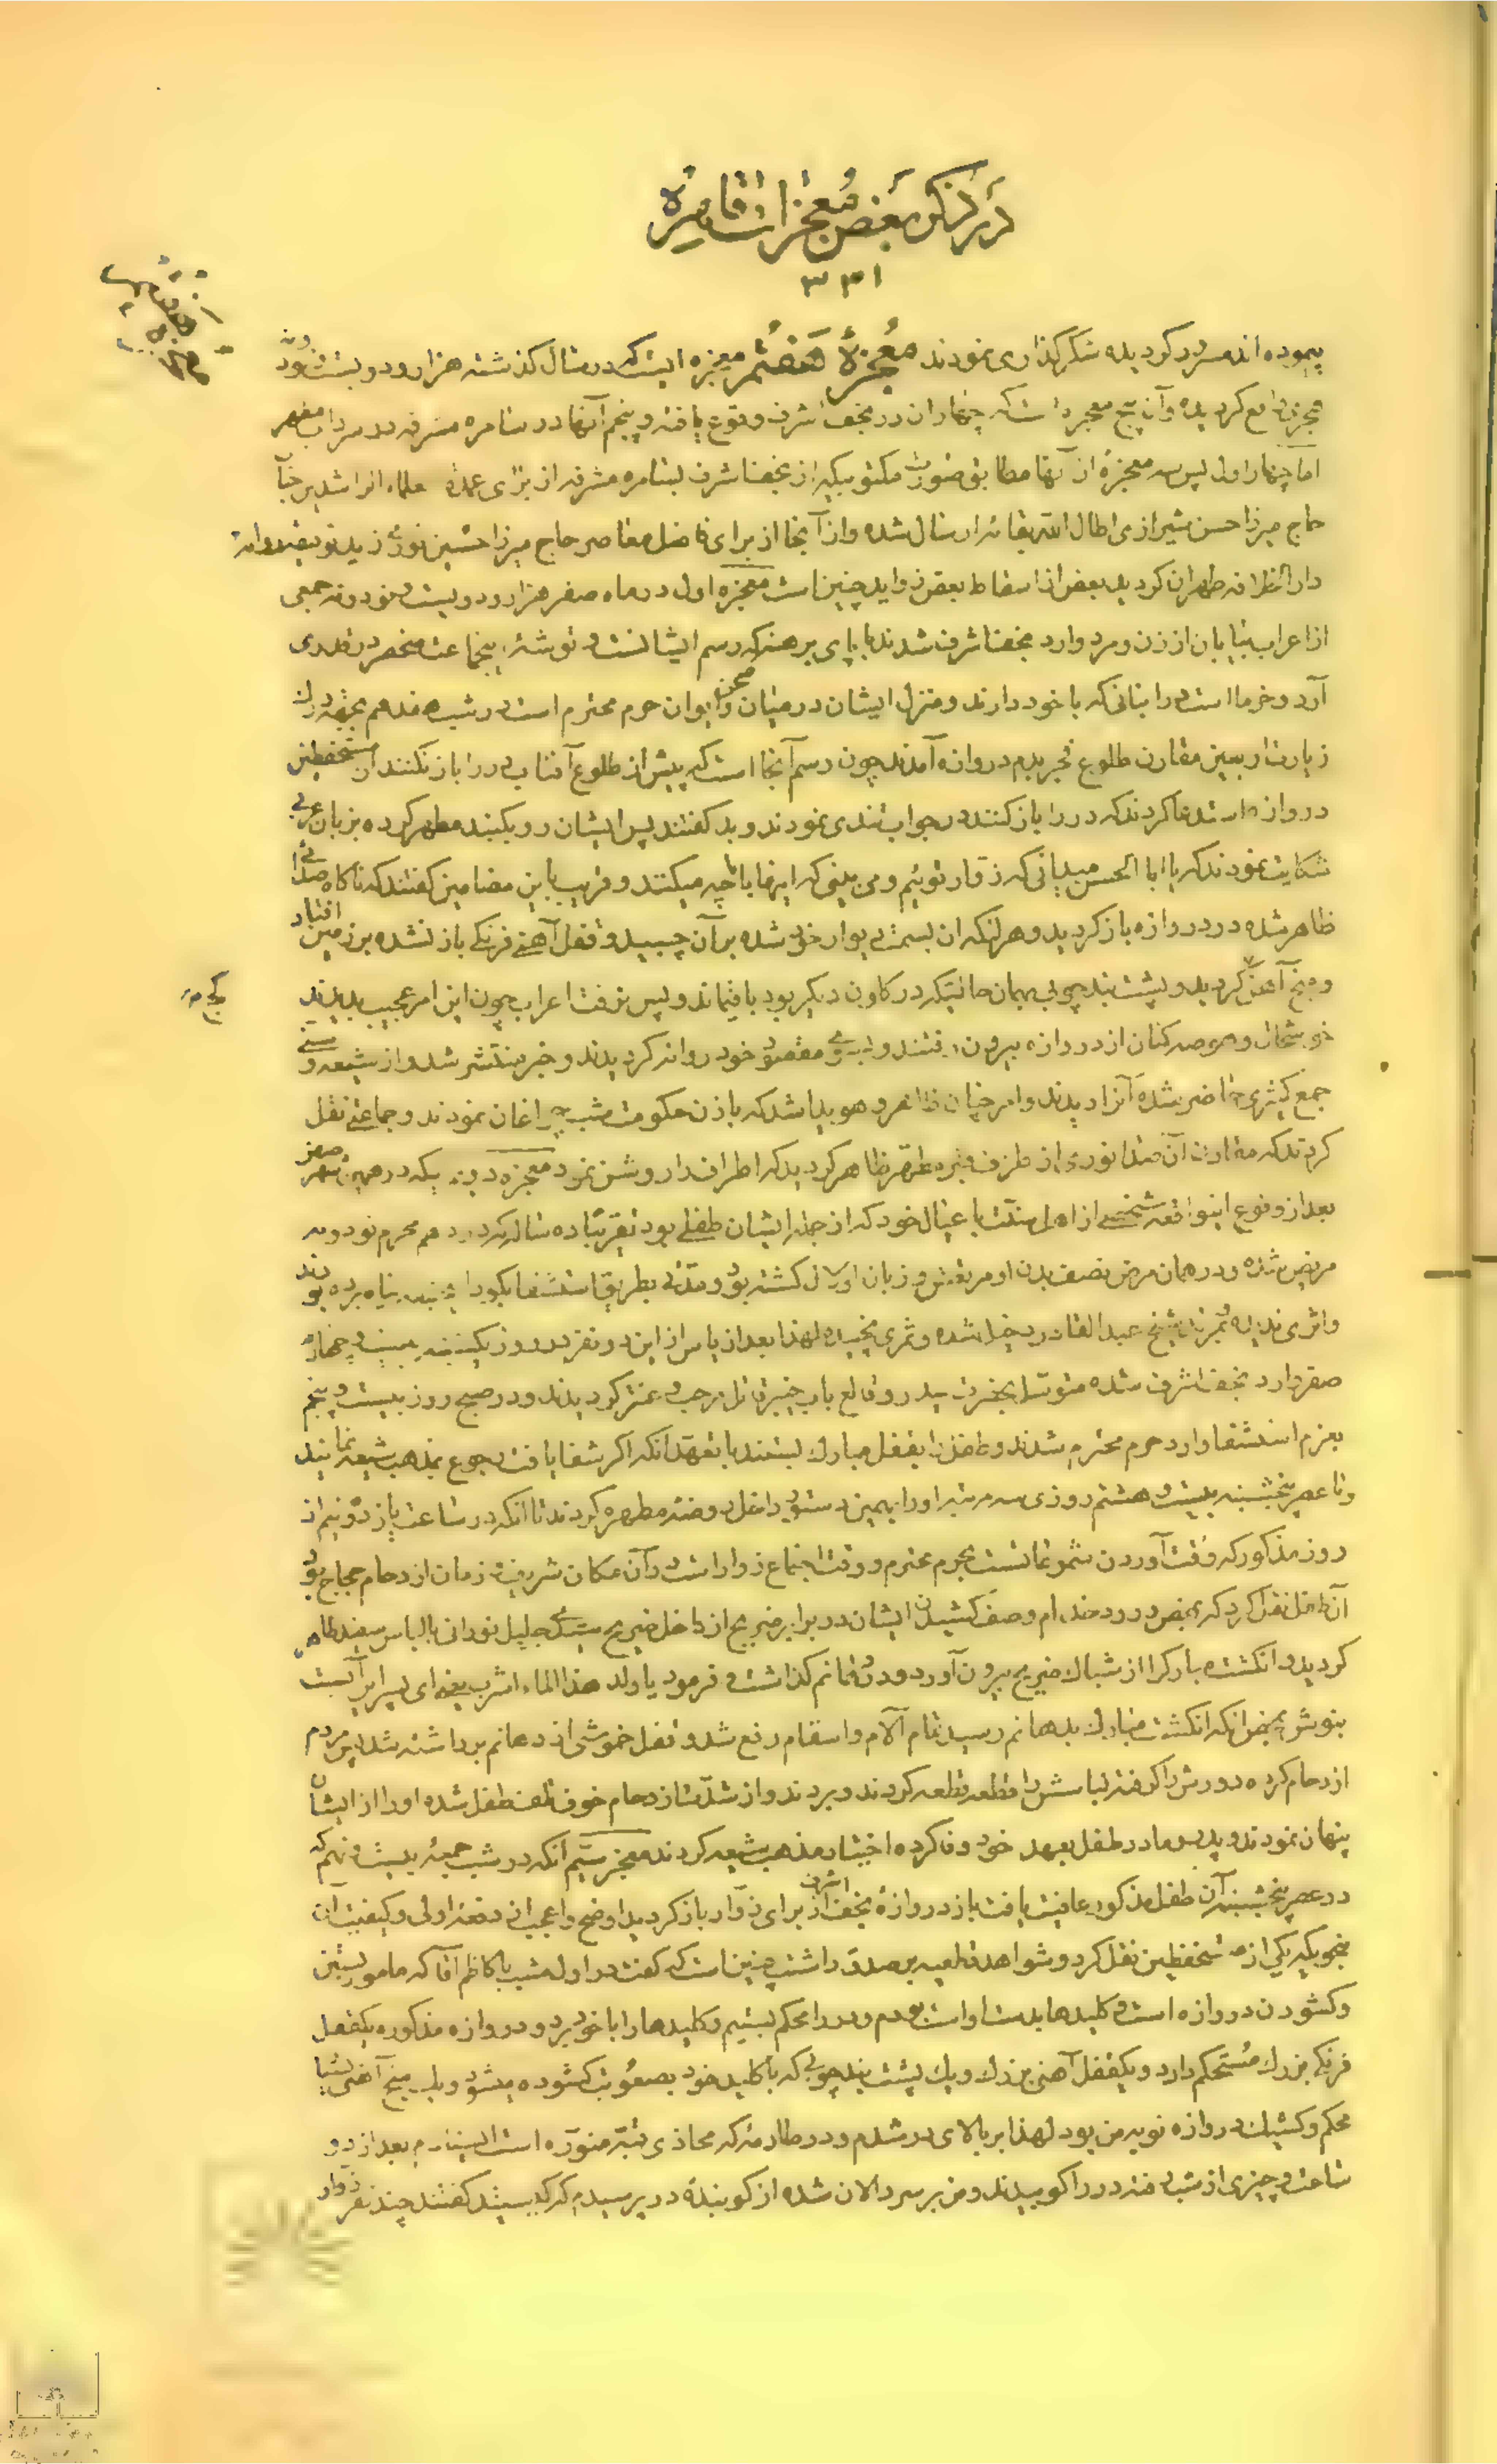 در ذکر بعض معجزات قاهره
۳۳۱
پیموده اند مسرور کردیده شکرگذاری نمودند معجزهٔ هفتم معجزه ایست که در سال کذشته هزار و دویست و نود
واقع کردیده و آن پنج معجزه است که چهار آن در نجف اشرف وقوع یافته و پنجم آنها در سامره مشرفه در سرداب مطهر
اما چهار اول پس سه معجزهٔ از آنها مطابق صورت مکتوبیکه از نجف اشرف بسامره مشرفه از برای عمدهٔ علماء الراشدین جناب
حاج میرزا حسن شیرازی اطال الله بقائه ارسال شده و از آنجا از برای فاضل معاصر حاج میرزا حسین نوری زید توفیقه روانه
دار الخلافه طهران کردید بعض از اسقاط بعض زواید چنین است معجزه اول در ماه صفر هزار و دویست و نود و نه جمعی
از اعراب بیابان از زن و مرد وارد نجف اشرف شدند با پای برهنه که رسم ایشانست و توشهٔ اینجماعت منحصر در قدری
آرد و خرما است در انبانی که با خود دارند و منزل ایشان در میان صحن و ایوان حرم محترم است در شب هفدهم بجهة درک
زیارت اربعین مقارن طلوع فجر بدم دروازه آمدند چون رسم آنجا است که پیش از طلوع آفتاب در را باز نکنند از مستحفظین
دروازه استدعا کردند که در را باز کنند در جواب تندی نمودند و بد کفتند پس ایشان رو بکنبد مطهر کرده بزبان عربی
شکایت نمودند که یا ابا الحسن میدانی که زوار توئیم و می بینی که اینها با ما چه میکنند و قریب باین مضامین کفتند که ناکاه صدائی
ظاهر شده در دروازه باز کردید و هر لنکه ان بسمت دیوار خود شده بر آن چسبید و قفل آهنی فرنکی باز نشده بر زمین افتاد
و میخ آهنی کج کردید و پشت بند چوبی بهمان حالتیکه در کاوِن دیکر بود باقیماند و پس نرفت اعراب چون این امر عجیب بدیدند
خوشحال و هوسه کنان از دروازه بیرون رفتند و بسوی مقصود خود روانه کردیدند و خبر منتشر شد و از شیعه و سنی
جمع کثیری حاضر شده آنرا دیدند و امر چنان ظاهر و هویدا شد که باذن حکومت شب چراغان نمودند و جماعتی نقل
کردند که مقارن آن صدا نوری از طرف مقبره مطهر ظاهر کردید که اطراف را روشن نمود معجزه دویم آنکه در همین شهر صفر
بعد از وقوع اینواقعه شخصی از اهل سنت با عیال خود که از جمله ایشان طفلی بود تقریبا ده ساله که در دهم محرم نود و نه
مریض شده و در همان مرض نصف بدن او مرتعش و زبان او لال کشته بود و مدتی بطریق استشفا بابو حنیفه پناه برده بودند
و اثری ندیده بمرتبه شیخ عبد القادر دخیل شده و ثمری نچیده لهذا بعد از یاس از این دو نفر در روز یکشنبه بیست و چهارم
صفر وارد نجف اشرف شده متوسل بحضرت حیدر و قالع باب خیبر قاتل مرحب و عنتر کردیدند و در صبح روز بیست و پنجم
بعزم استشفا وارد حرم محترم شدند و طفل را بقفل مبارک بستند با تعهد آنکه اکر شفا یافت رجوع بمذهب شیعه نمایند
و تا عصر پنجشنبه بیست و هشتم روزی سه مرتبه او را بهمین دستور داخل روضه مطهره کردند تا آنکه در ساعت یازده و نیم از
روز مذکور که وقت آوردن شموعات است بحرم محترم و وقت اجتماع زوار است در آن مکان شریف و زمان ازدحام حجاج بود
آن طفل نقل کرد که بمحض ورود خدام و صف کشیدن ایشان در برابر ضریح از داخل ضریح سیدی جلیل نورانی با لباس سفید ظاهر
کردید و انکشت مبارکرا از شباک ضریح بیرون آورد و در دهانم کذاشت و فرمود یا ولد هذا الماء اشرب یعنی ای پسر این آبست
بنوش بمحض آنکه انکشت مبارک بدهانم رسید تمام آلام و اسقام رفع شد و قفل خموشی از دهانم برداشته شد پس مردم
ازدحام کرده دورش را کرفته لباسش را قطعه قطعه کردند و بردند و از شدت ازدحام خوف تلف طفل شده او را از ایشان
پنهان نمودند و پدر و مادر طفل بعهد خود وفا کرده اختیار مذهب شیعه کردند معجزه سیم آنکه در شب جمعهٔ بیست و نهم که
در عصر پنجشنبه آن طفل مذکور عافیت یافت باز دروازهٔ نجف اشرف از برای زوار باز کردید اوضح و اعجب از دفعه اولی و کیفیت آن
بنحویکه یکی از مستحفظین نقل کرد و شواهد قطعیه بر صدق داشت چنین است که کفت در اول شب با کاظم آقا که مامور بستن
و کشودن دروازه است و کلیدها بدست او است بودم و در را محکم بستیم و کلیدها را با خود برد و دروازه مذکوره یکقفل
فرنکی بزرک مستحکم دارد و یکقفل آهنی بزرک و یک پشت بند چوبی که با کلید خود بصعوبت کشوده میشود و یک میخ آهنی بسیار
محکم و کشیک دروازه نوبه من بود لهذا بر بالای در شدم و در طارمهٔ که محاذی قبه منوره است ایستادم بعد از دو
ساعت و چیزی از شب رفته در را کوبیدند و من بر سر دالان شده از کوبندهٔ در پرسیدم که کیستید کفتند چند نفر زوار
کج ظ